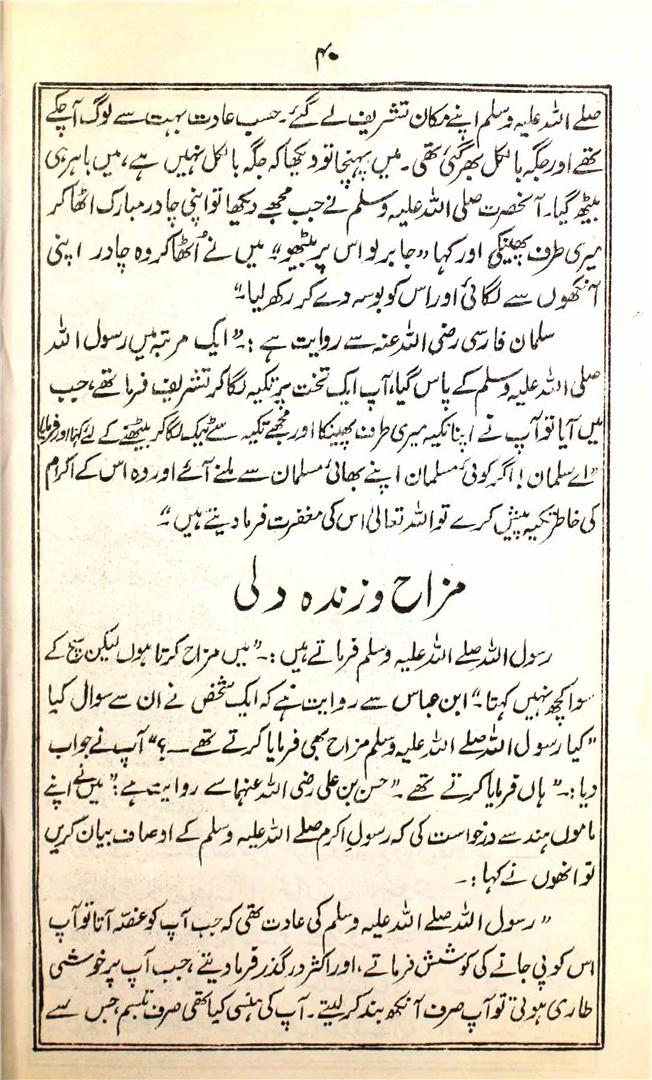 ۴۰
صلے اللہ علیہ وسلم اپنے مکان تشریف لے گئے۔ حسب عادت بہت سے لوگ آ چکے
تھے اور جگہ بالکل بھر گئی تھی۔ میں پہنچا تو دیکھا کہ جگہ بالکل نہیں ہے، میں باہر ہی
بیٹھ گیا۔ آنحضرت صلی اللہ علیہ وسلم نے جب مجھے دیکھا تو اپنی چادر مبارک اٹھا کر
میری طرف پھینکی اور کہا "جابر لو اس پر بیٹھو" میں نے اُٹھا کر وہ چادر اپنی
آنکھوں سے لگائی اور اس کو بوسہ دے کر رکھ لیا۔"
سلمان فارسی رضی اللہ عنہ سے روایت ہے :۔ "ایک مرتبہ میں رسول اللہ
صلی اللہ علیہ وسلم کے پاس گیا، آپ ایک تخت پر تکیہ لگا کر تشریف فرما تھے، جب
میں آیا تو آپ نے اپنا تکیہ میری طرف پھینکا اور مجھے تکیہ سے ٹیک لگا کر بیٹھنے کے لئے کہا اور فرمایا
"اے سلمان! اگر کوئی مسلمان اپنے بھائی مسلمان سے ملنے آئے اور وہ اس کے اکرام
کی خاطر تکیہ پیش کرے تو اللہ تعالیٰ اس کی مغفرت فرما دیتے ہیں۔"
مزاح و زندہ دلی
رسول اللہ صلے اللہ علیہ وسلم فرماتے ہیں :۔ "میں مزاح کرتا ہوں لیکن سچ کے
سوا کچھ نہیں کہتا۔" ابن عباس سے روایت ہے کہ ایک شخص نے ان سے سوال کیا
"کیا رسول اللہ صلے اللہ علیہ وسلم مزاح بھی فرمایا کرتے تھے ۔۔؟" آپ نے جواب
دیا :۔ "ہاں فرمایا کرتے تھے۔" حسن بن علی رضی اللہ عنہما سے روایت ہے : "میں نے اپنے
ماموں ہند سے درخواست کی کہ رسول اکرم صلے اللہ علیہ وسلم کے اوصاف بیان کریں
تو انھوں نے کہا :۔
"رسول اللہ صلے اللہ علیہ وسلم کی عادت تھی کہ جب آپ کو غصّہ آتا تو آپ
اس کو پی جانے کی کوشش فرماتے، اور اکثر در گذر فرما دیتے، جب آپ پر خوشی
طاری ہوتی تو آپ صرف آنکھ بند کر لیتے۔ آپ کی ہنسی کیا تھی صرف تبسم، جس سے